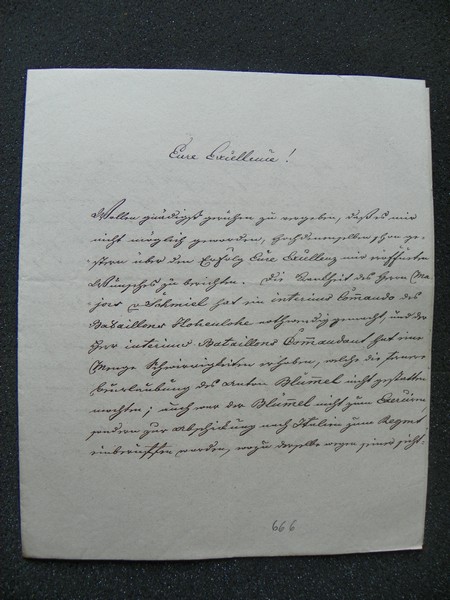 Eure Excellenz!
Wollen gnädigst geruhen zu vergeben, daß es mir
nicht möglich geworden, Hochdenenselben schon ge-
stern über den Erfolg Eure Excellenz mir eröffneten
Wunsches zu berichten. Die Krankheit des Herrn Ma-
jors v. Schmiel hat ein interims Commando des
Bataillons Hohenlohe nothwendig gemacht, und der
Herr interims Bataillons Commandant hat eine
Menge Schwierigkeiten erhoben, welche die
Beurlaubung des Anton Blümmel nicht gestatten
mochten; auch war der Blümel nicht zum Exerciren,
sondern zur Abschickung nach Italien zum Regmt
einberuffen worden, wozu derselbe wegen seines
666